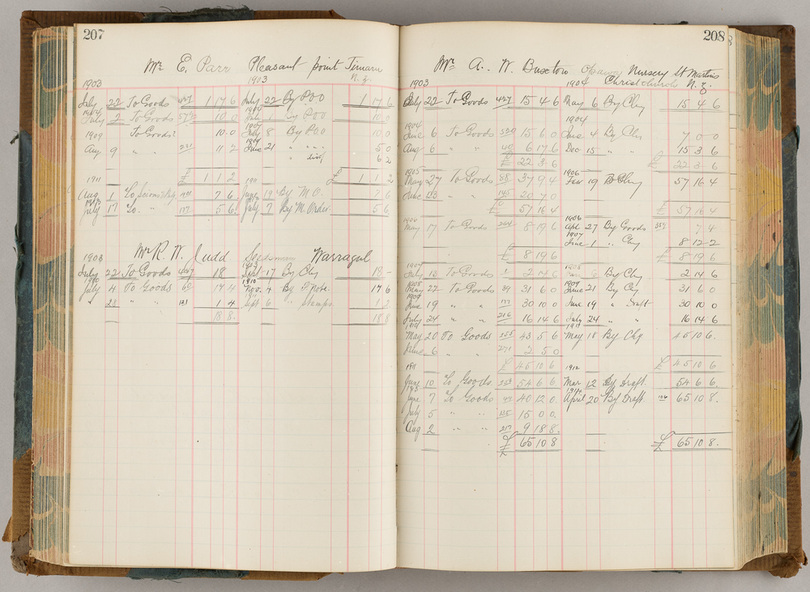 207
Mr E. Parr Pleasant Point Timaru
N.Z.
1903 1903
July 22 To Goods 1 17 6 July 22 By POO 1 17 6
July 2 To Goods 10.0 July 1 By POO 10.0
1909 To Goods 10.0 July 8 By POO 10.0
Aug 9 " " 11 2 June 21 " " 5 0
" 6 2
£ 1 1 2 £ 1 1 2
1911
Aug 1 To 7 6 June 19 By M.O. 7 6
July 17 To " 5 6 July 9 By M. Order 5 6
1903 Mr R. W. Judd Seedsman Warragul
July 22 To Goods 18 Sept 17 By Chq 18 -
July 4 To Goods 17 4 Nov. 9 By P Note 17 6
20 " " 1 4 Sept 6 " Stamps 1 2
18 8 18 8
208
Mr A. W. Buxton Nursery St Martins
Christchurch N.Z.
1903 1904
July 22 To Goods 427 15 4 6 May 6 By Chq 15 4 6
1904 1904
June 6 To Goods 15 6 0 June 4 By Chq 7 0 0
Aug 6 " " 6 17 6 Dec 15 " " 15 3 6
£ 22 3 6 £ 22 3 6
1905 1906
May 27 To Goods 37 9 4 Feb 19 By Chq 57 16 4
June 20 7 0
£ 57 16 4 £ 57 16 4
1906 1906
May 17 To Goods 8 19 6 Apl 27 By Goods 7 4
1907
June 1 " Chq 8 12 2
£ 8 19 6 £ 8 19 6
July 10 To Goods 2 14 6 By Chq 2 14 6
1908 1909
May 22 To Goods 31 6 0 June 21 By Chq 31 6 0
1909
June 19 " " 30 10 0 June 19 " Draft 30 10 0
July 24 " " 216 16 14 6 July 24 " " 16 14 6
1911 1911
May 20 To Goods 43 5 6 May 18 By Chq 45 10 6
June 6 " " 2 5 0
£ 45 10 6 £ 45 10 6
1912
June 10 To Goods 54 6 6 Mar 12 By Draft 54 6 6
June 7 To Goods 40 12 0 April 20 By Draft 65 10 8
July 5 " " 15 0 0
Aug 2 " " 9 18 8
£ 65 10 8 £ 65 10 8